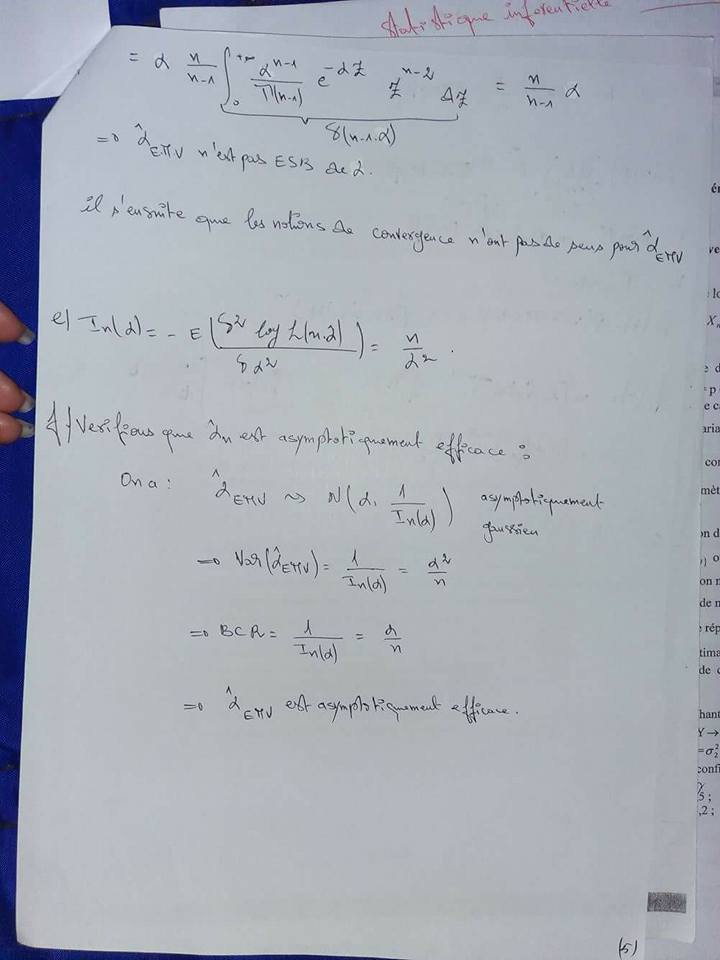 Statistique inferentielle
= α n/n-1 ∫₀^{+∞} α^{n-1}/Γ(n-1) e^{-αZ} Z^{n-2} dZ = n/n-1 α
γ(n-1.α)
=> α̂_EMV n'est pas ESB de α.
il s'ensuite que les notions de convergence n'ont pas de sens pour α̂_EMV
e/ In(α) = - E ( δ² log L(x.α) / δα² ) = n/α² .
f/ Verifions que α̂n est asymptotiquement efficace :
On a : α̂_EMV ~> N(α, 1/In(α)) asymptotiquement
gaussien
=> Var(α̂_EMV) = 1/In(α) = α²/n
=> BCR = 1/In(α) = α/n
=> α̂_EMV est asymptotiquement efficace.
(5)